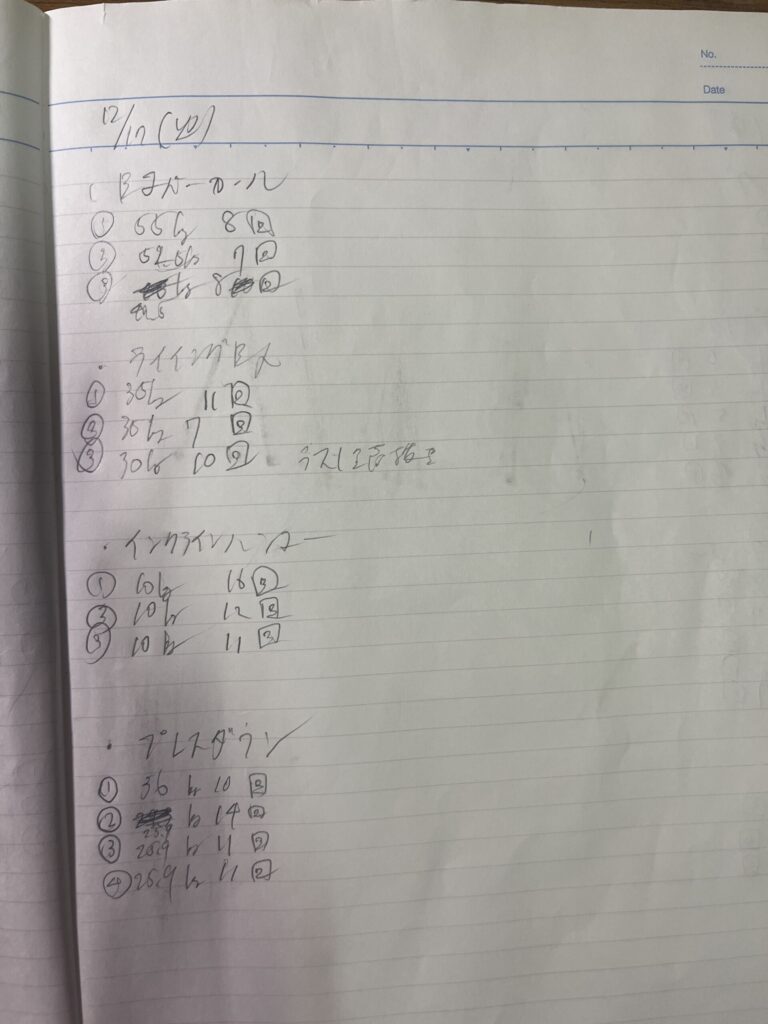 No.
Date
12/17
バーカール
① 55kg 8回
② 52.5kg 7回
③ kg 8 回
・ライイングEX
① 35kg 11回
② 30kg 7 回
③ 30kg 10回
・インクラインハンマー
① 10kg 16回
② 10kg 12回
③ 10kg 11回
・プレスダウン
① 36kg 10回
② kg 14回
25.9
③ 25.9kg 11回
④ 25.9kg 11回